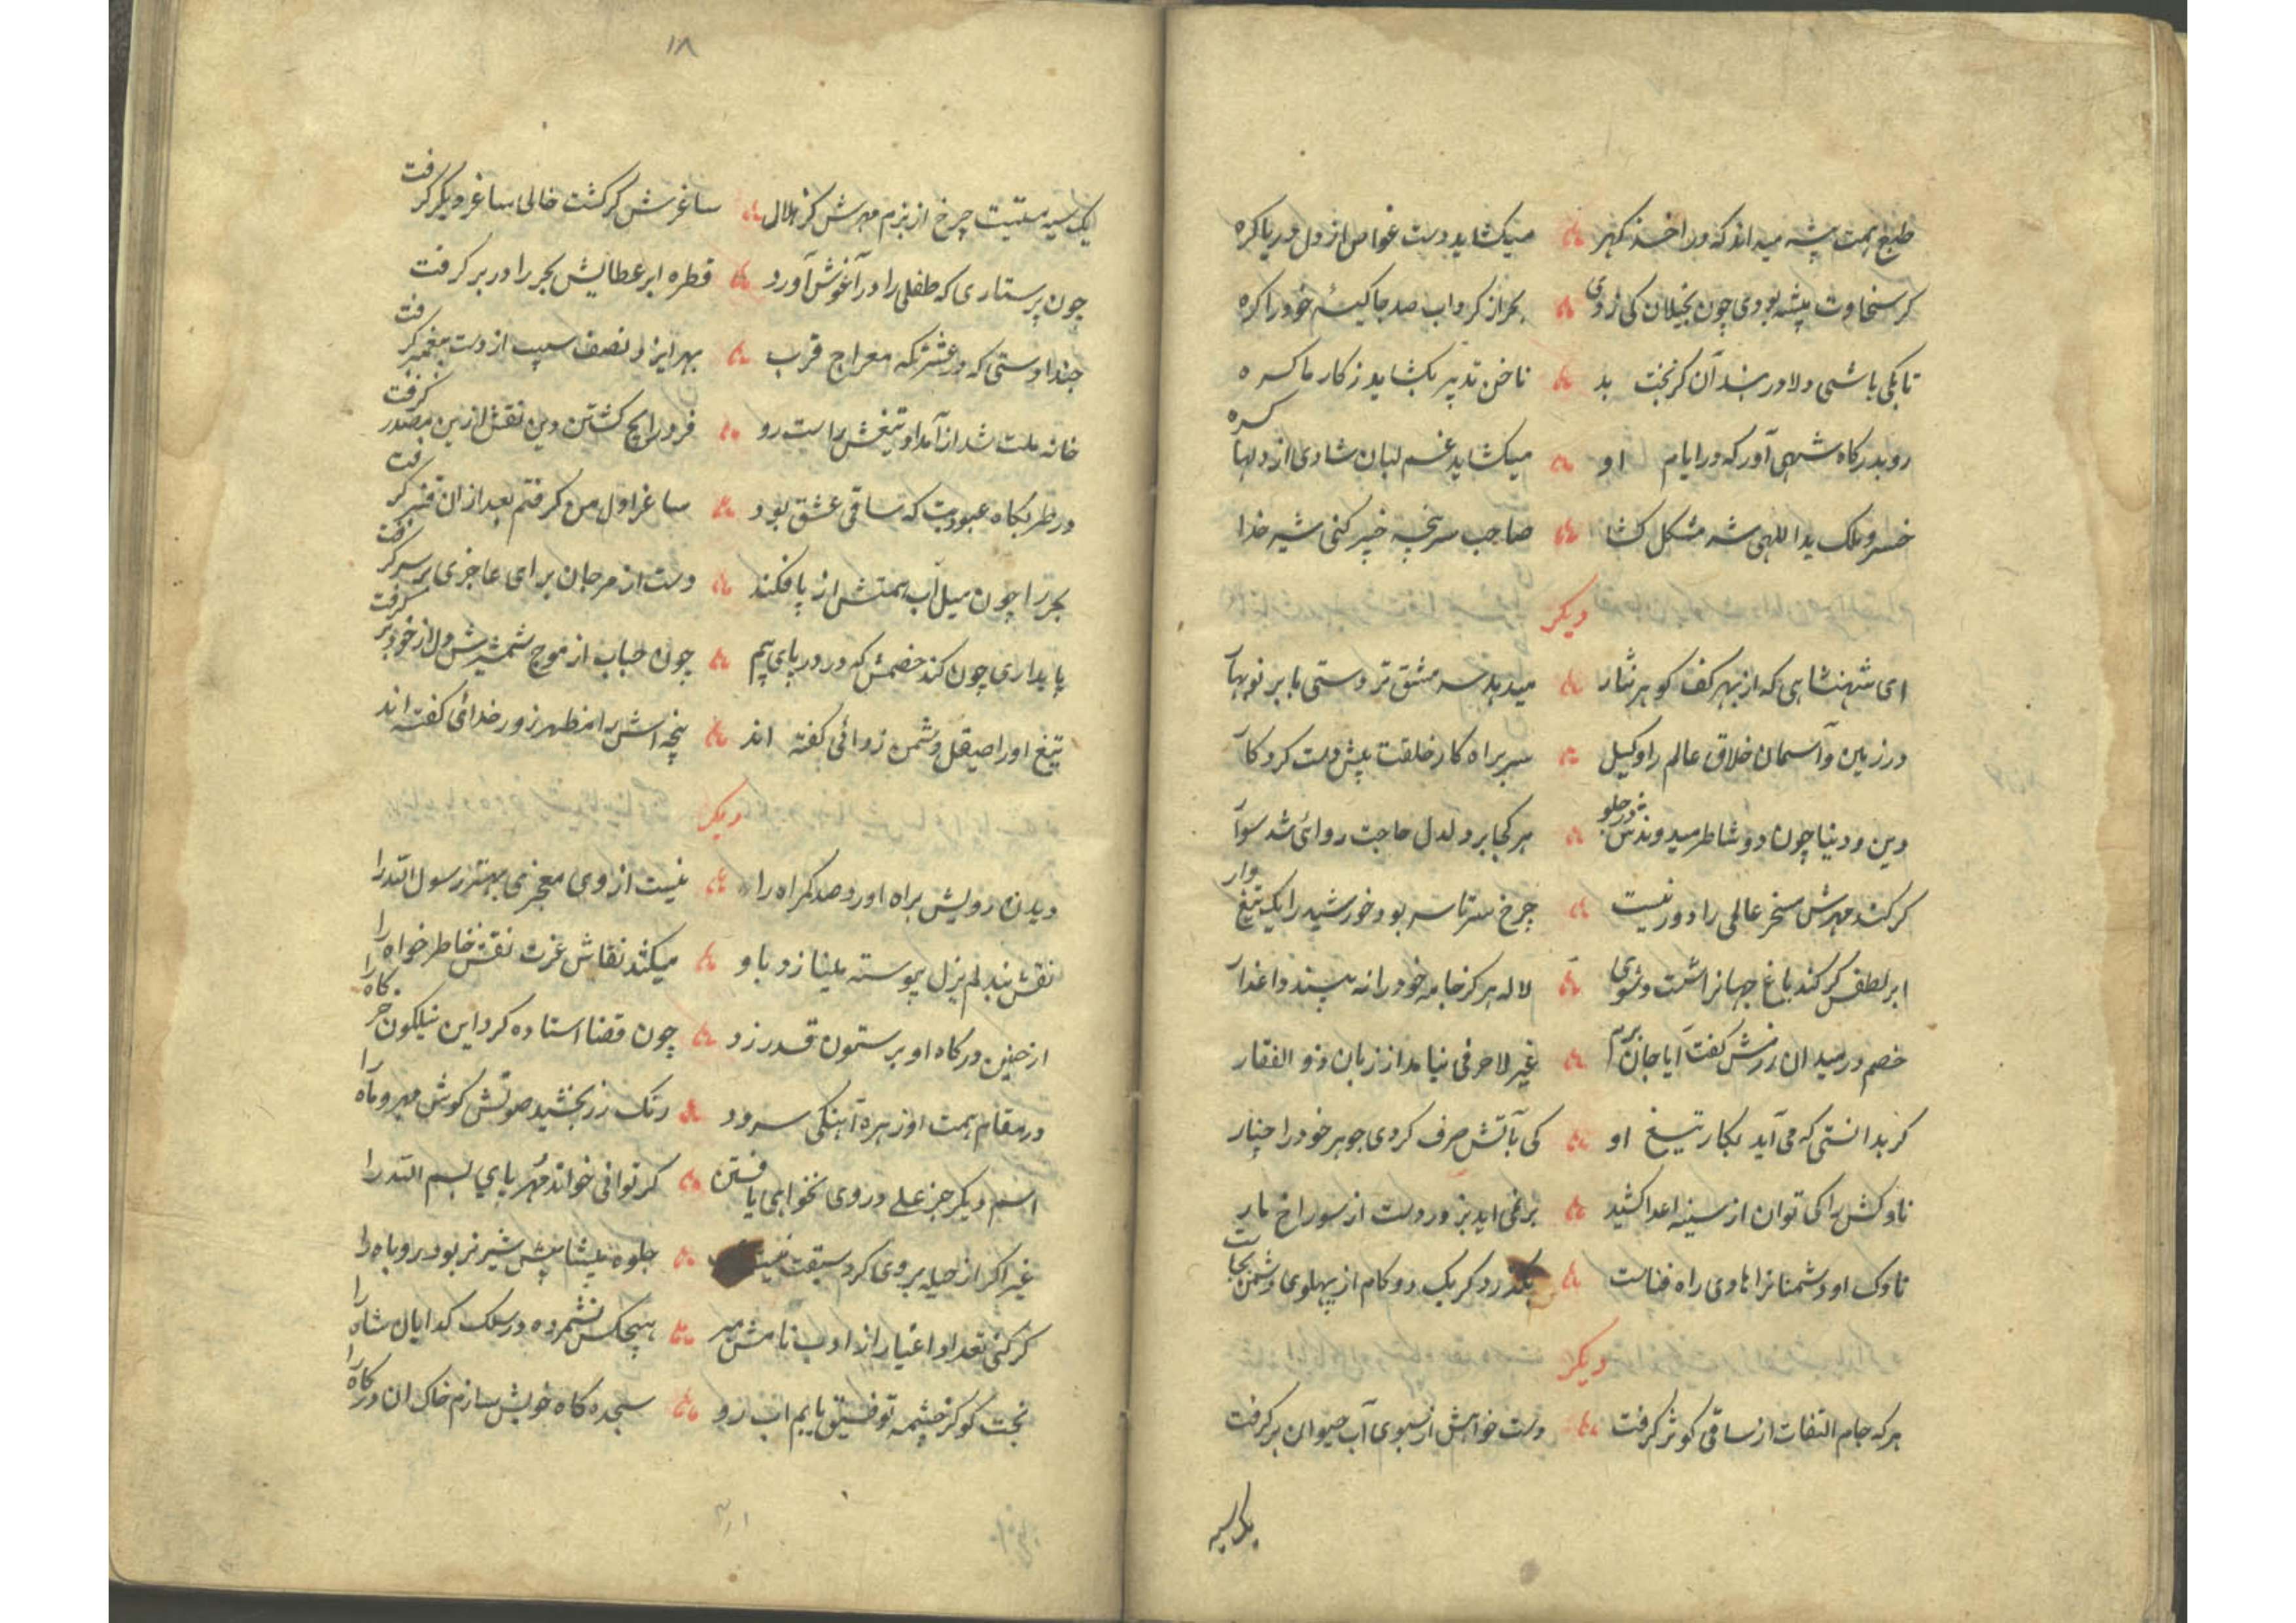 طبع همت پیشه میداند که در اخذ گهر میگشاید دست غواص از دل دریا گره
گر سخاوت پیشه بودی چون بخیلان کی زدی بحر از گرداب صد جا کیسهٔ خود را گره
تا بکی باشی دلا در بند آن کز بخت بد ناخن تدبیر بگشاید ز کار ما گره
رو بدرگاه شهی آور که در ایام او میگشاید غم لبان شادی از دلها گره
خسرو ملک یداللهی شه مشکل گشا صاحب سرپنجه خیبر کنی شیر خدا
دیگر
ای شهنشاهی که از بهر کف گوهر نثار میدهد سرمشق تردستی بابر نوبهار
در زمین و آسمان خلاق عالم را وکیل سربراه کار خلقت پیش دست کردگار
دین و دنیا چون دو شاطر میدوندش در جلو هر کجا بر دلدل حاجت روائی شد سوار
گر کند مهرش مسخر عالمی را دور نیست چرخ سرتاسر بود خورشید را یک تیغ وار
ابر لطفش گر کند باغ جهانرا شست و شوی لاله هرگز جامه خود را نه بیند داغدار
خصم در میدان رزمش گفت آیا جان برم غیر لا حرفی نیامد از زبان ذوالفقار
گر بدانستی که می آید بکار تیغ او کی بآتش صرف کردی جوهر خود را چنار
ناوکش را کی توان از سینه اعدا کشید بر نمی اید بزور دست از سوراخ مار
ناوک او دشمنانرا هادی راه فناست بگذرد گر یک دو گام از پهلوی دشمن بجاست
دیگر
هر که جام التفات از ساقی کوثر گرفت دست خواهش از سبوی آب حیوان بر گرفت
یک سیه
۱۸
یک سیه مستیست چرخ از بزم مهرش کز هلال ساغرش گر گشت خالی ساغر دیگر گرفت
چون پرستاری که طفلی را در آغوش آورد قطره ابر عطایش بحر را در بر گرفت
حبذا دستی که در عشرتگه معراج قرب بهر ایزد نصف سیب از دست پیغمبر گرفت
خانه ملت شد از آمد او تیغش راست رو فرد رایج گشتن دین نقش ازین مصدر گرفت
در طربگاه عبودیت که ساقی عشق بود ساغر اول من و گرفتم بعد از ان قنبر گرفت
بحر را چون میل آب همتش از پا فکند دست از مرجان برای عاجزی بر سر گرفت
پایداری چون کند خصمش که در دریای بیم چون حباب از موج شمشیرش دل از خود بر گرفت
تیغ او را صیقل دشمن زدائی گفته اند پنجه اش را مظهر زور خدائی گفته اند
دیگر
دیدن رویش براه اورد صد گمراه را نیست از وی معجزی بهتر رسول الله را
نقش بند لم یزل پیوسته میبازد باو میکشد نقاش عزت نقش خاطر خواه را
از چنین درگاه او بر ستون قدر زد چون قضا استاده کرد این نیلگون خرگاه را
در مقام همت او زهره آهنگی سرود رنگ زر بخشید صوتش گوش مهر و ماه را
اسم دیگر جز علی در وی نخواهی یافتن گر توانی خواند مهر بای بسم الله را
غیر اگر از حیله بر وی کرد سبقت جلوه پیشاپیش شیر نر بود روباه را
گر کنی تعداد اغیار از ادب نامش مبر هیچکس نشمرده در سلک گدایان شاه را
بخت کو کز چشمه توفیق یابم اب رو سجده گاه خویش سازم خاک ان درگاه را